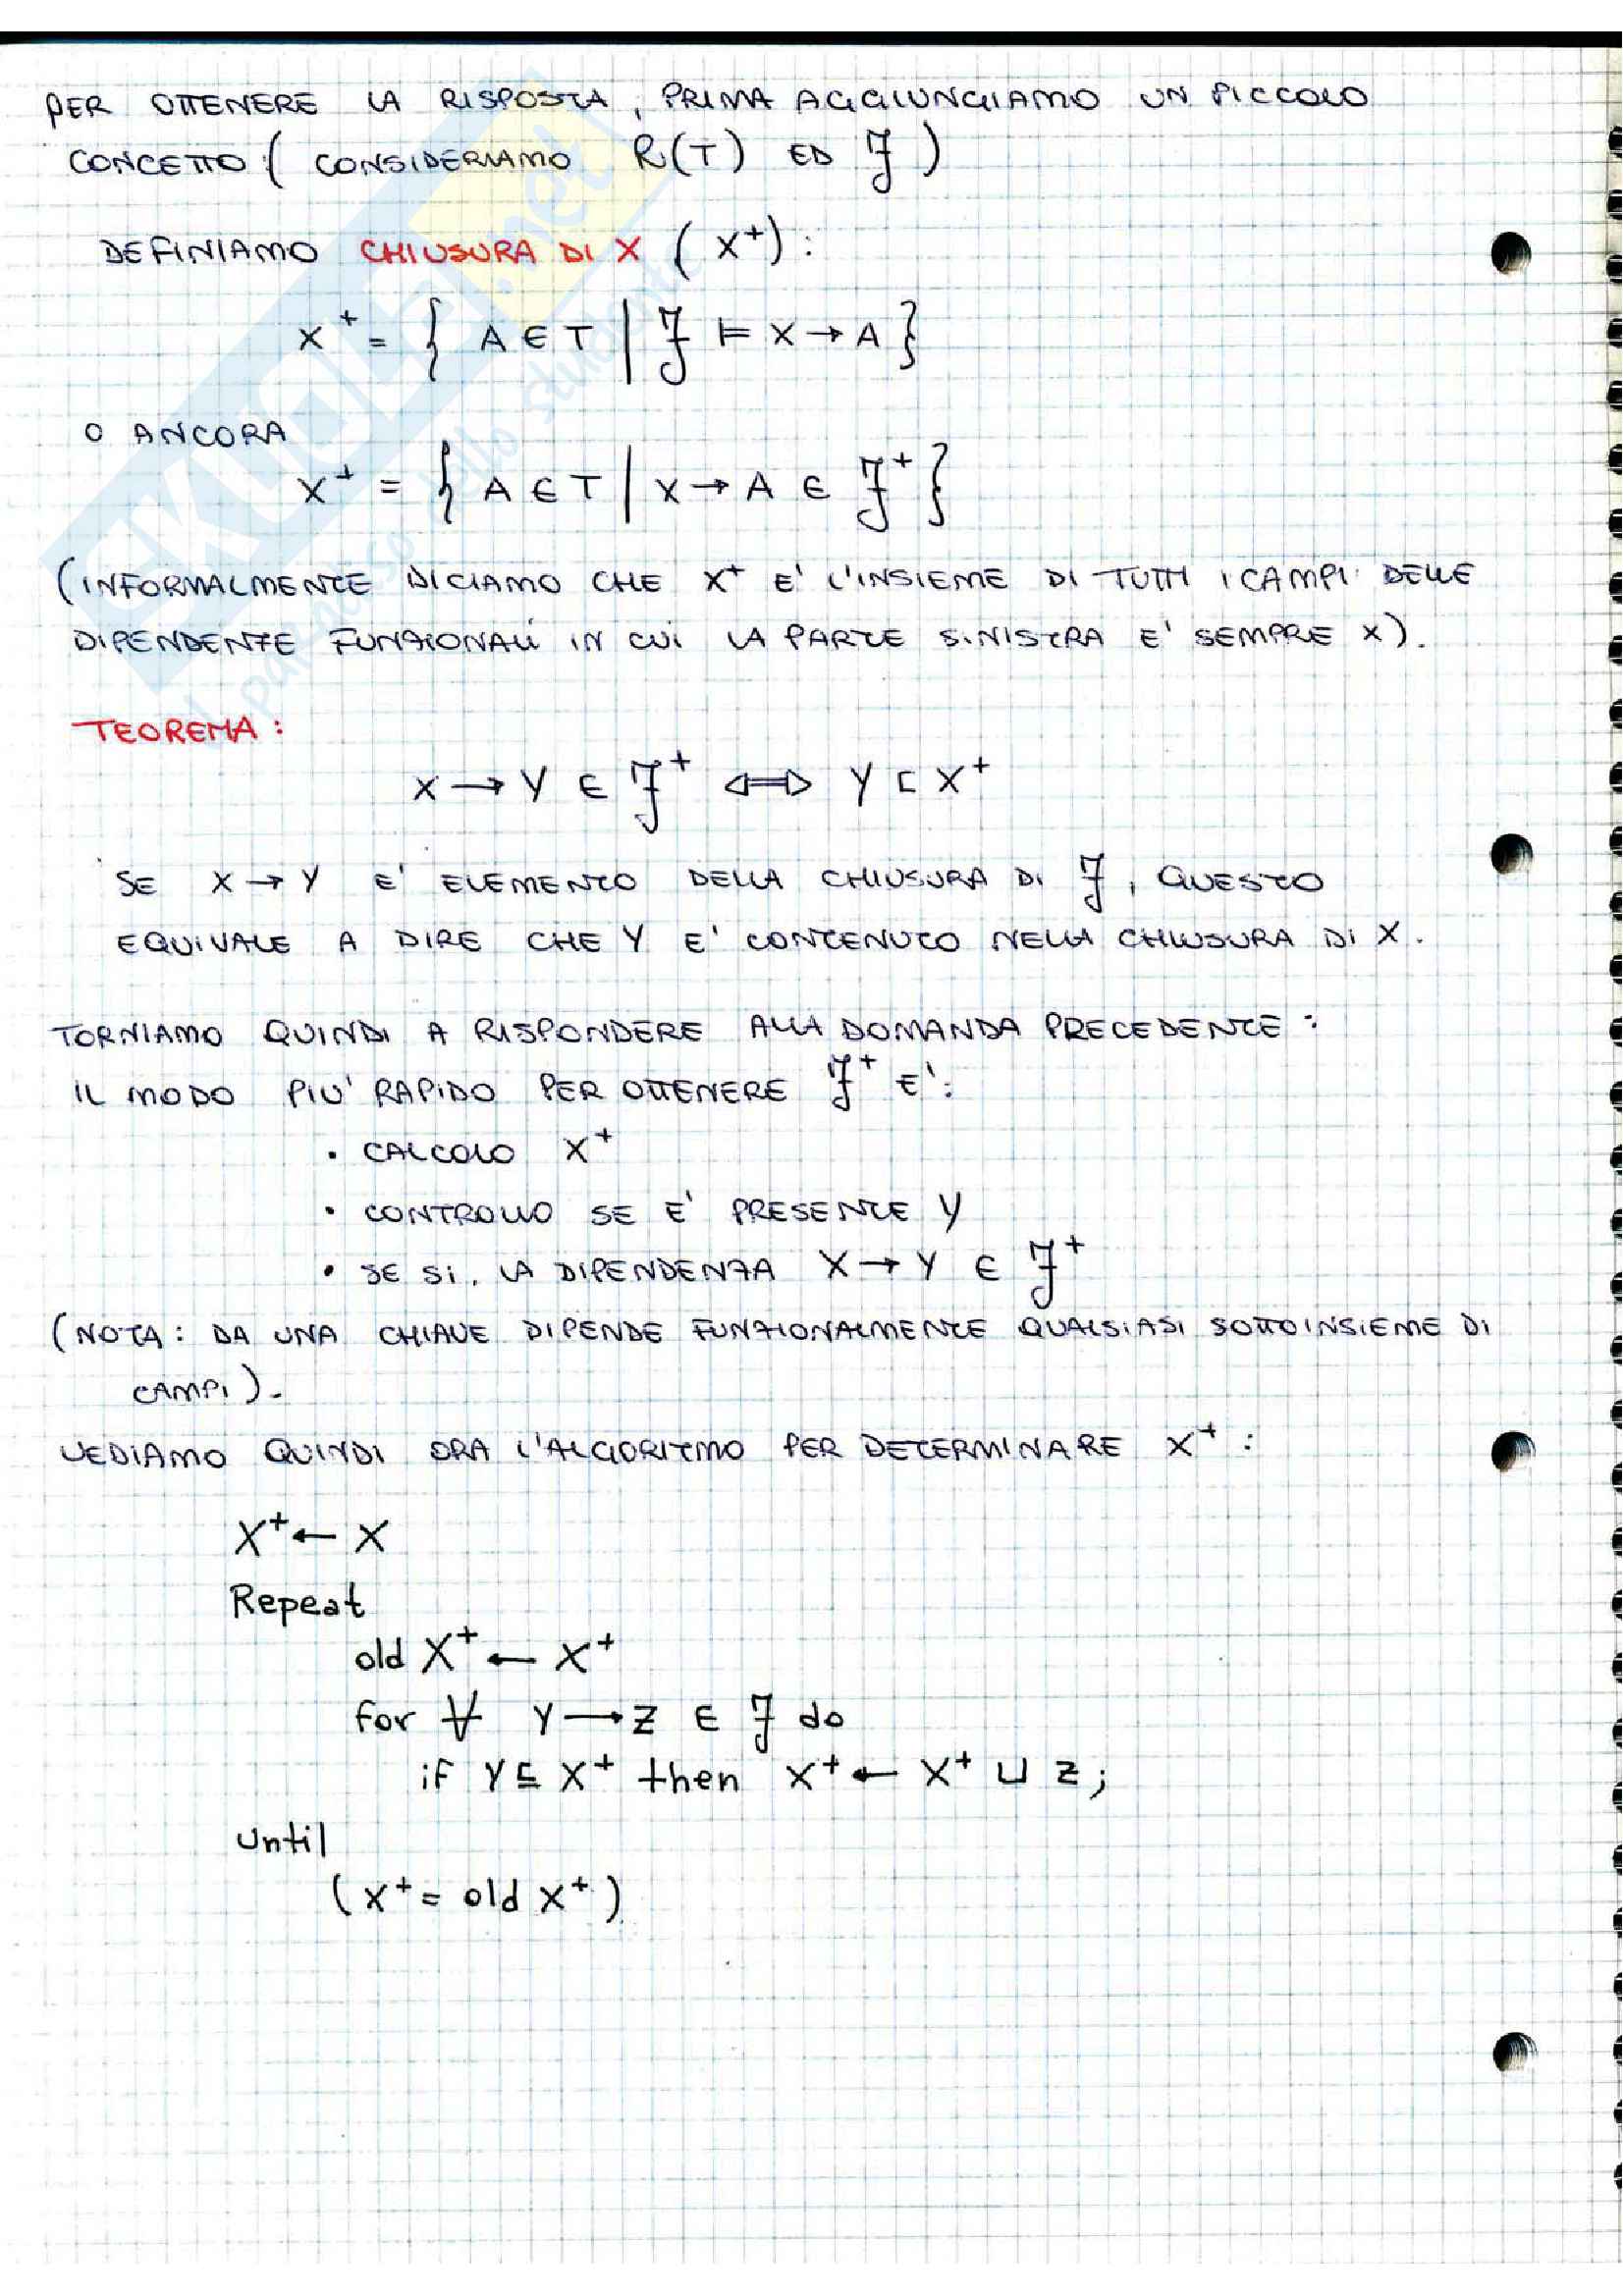 PER OTTENERE LA RISPOSTA, PRIMA AGGIUNGIAMO UN PICCOLO
CONCETTO ( CONSIDERIAMO R(T) ED ℱ )
DEFINIAMO CHIUSURA DI X ( X⁺) :
X⁺ = { A ∈ T | ℱ ⊨ X → A }
O ANCORA
X⁺ = { A ∈ T | X → A ∈ ℱ⁺ }
(INFORMALMENTE DICIAMO CHE X⁺ E' L'INSIEME DI TUTTI I CAMPI DELLE
DIPENDENZE FUNZIONALI IN CUI LA PARTE SINISTRA E' SEMPRE X).
TEOREMA :
X → Y ∈ ℱ⁺ ⟺ Y ⊂ X⁺
SE X → Y E' ELEMENTO DELLA CHIUSURA DI ℱ, QUESTO
EQUIVALE A DIRE CHE Y E' CONTENUTO NELLA CHIUSURA DI X.
TORNIAMO QUINDI A RISPONDERE ALLA DOMANDA PRECEDENTE :
IL MODO PIU' RAPIDO PER OTTENERE ℱ⁺ E' :
• CALCOLO X⁺
• CONTROLLO SE E' PRESENTE Y
• SE SI, LA DIPENDENZA X → Y ∈ ℱ⁺
(NOTA : DA UNA CHIAVE DIPENDE FUNZIONALMENTE QUALSIASI SOTTOINSIEME DI
CAMPI).
VEDIAMO QUINDI ORA L'ALGORITMO PER DETERMINARE X⁺ :
X⁺ ← X
Repeat
old X⁺ ← X⁺
for ∀ Y → Z ∈ ℱ do
if Y ⊆ X⁺ then X⁺ ← X⁺ ∪ Z ;
until
( X⁺ = old X⁺ )
SKUOLA.net
il paradiso dello studente